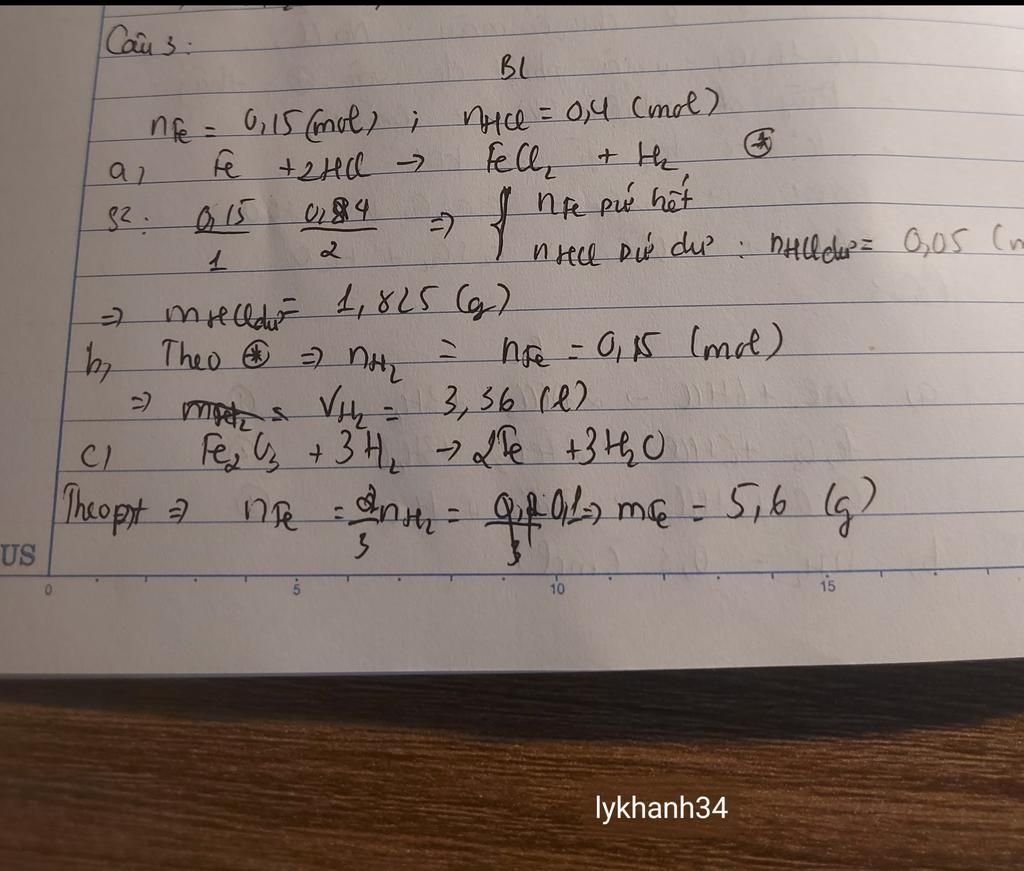 Câu 3:
BL
nFe = 0,15 (mol) ; nHCl = 0,4 (mol)
a, Fe + 2HCl → FeCl₂ + H₂ (*)
S²: 0,15/1 0,4/2 ⇒ { nFe pứ hết
nHCl pứ dư : nHCl dư = 0,05 (m
⇒ mHCl dư = 1,825 (g)
b, Theo (*) ⇒ nH₂ = nFe = 0,15 (mol)
⇒ VH₂ = 3,36 (l)
c) Fe₂O₃ + 3H₂ → 2Fe + 3H₂O
Theo pt ⇒ nFe = 2/3 nH₂ = 0,1 ⇒ mFe = 5,6 (g)
US
0 5 10 15
lykhanh34